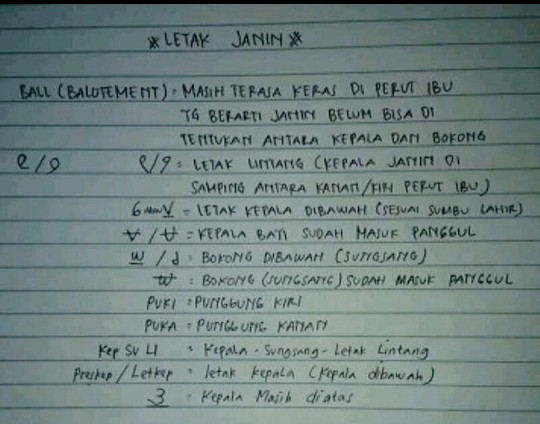 * LETAK JANIN *
BALL (BALOTEMENT) : MASIH TERASA KERAS DI PERUT IBU
TG BERARTI JANIN BELUM BISA DI
TENTUKAN ANTARA KEPALA DAN BOKONG
: LETAK LINTANG (KEPALA JANIN DI
SAMPING ANTARA KANAN/KIRI PERUT IBU)
= LETAK KEPALA DIBAWAH (SESUAI SUMBU LAHIR)
= KEPALA BAYI SUDAH MASUK PANGGUL
w / d : BOKONG DIBAWAH (SUNGSANG)
w : BOKONG (SUNGSANG) SUDAH MASUK PANGGUL
PUKI : PUNGGUNG KIRI
PUKA : PUNGGUNG KANAN
Kep SU LI : Kepala - Sungsang - Letak Lintang
Preskep / Letkep : letak kepala (kepala dibawah)
3 : Kepala Masih diatas